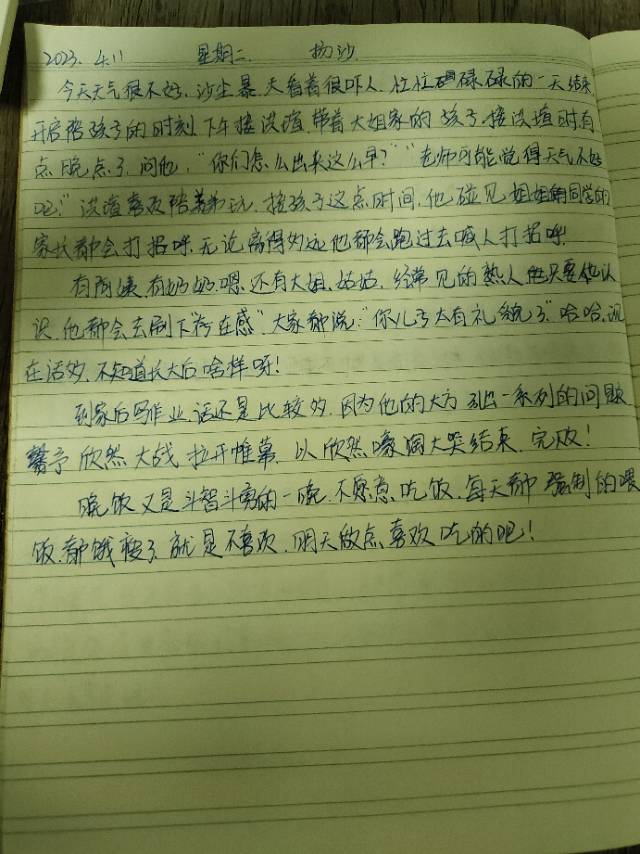 2023. 4.11 星期二. 扬沙.
今天天气很不好. 沙尘暴. 天看着很吓人. 忙忙碌碌的一天结束.
开启陪孩子的时刻下午接洪谊. 带着大姐家的孩子. 接洪谊时有
点晚点了. 问他, "你们怎么出来这么早?" "老师可能觉得天气不好
吧!" 洪谊喜欢陪着玩. 接孩子这点时间, 他碰见姐姐同学的
家长都会打招呼. 无论离得多远他都会跑过去喊人打招呼.
有阿姨. 有奶奶. 嗯. 还有大姐. 姑姑. 经常见的熟人只要他认
识. 他都会去刷下"存在感" 大家都说: "你儿子太有礼貌了." 哈哈. 现
在话多. 不知道长大后啥样呀!
到家后写作业. 话还是比较多. 因为他的大方引出一系列的问题
馨予欣然大战拉开帷幕. 以欣然嚎啕大哭结束. 完败!
晚饭又是斗智斗勇的一晚. 不愿意吃饭. 每天都强制的喂
饭. 都饿瘦了. 就是不喜欢. 明天做点喜欢吃的吧!